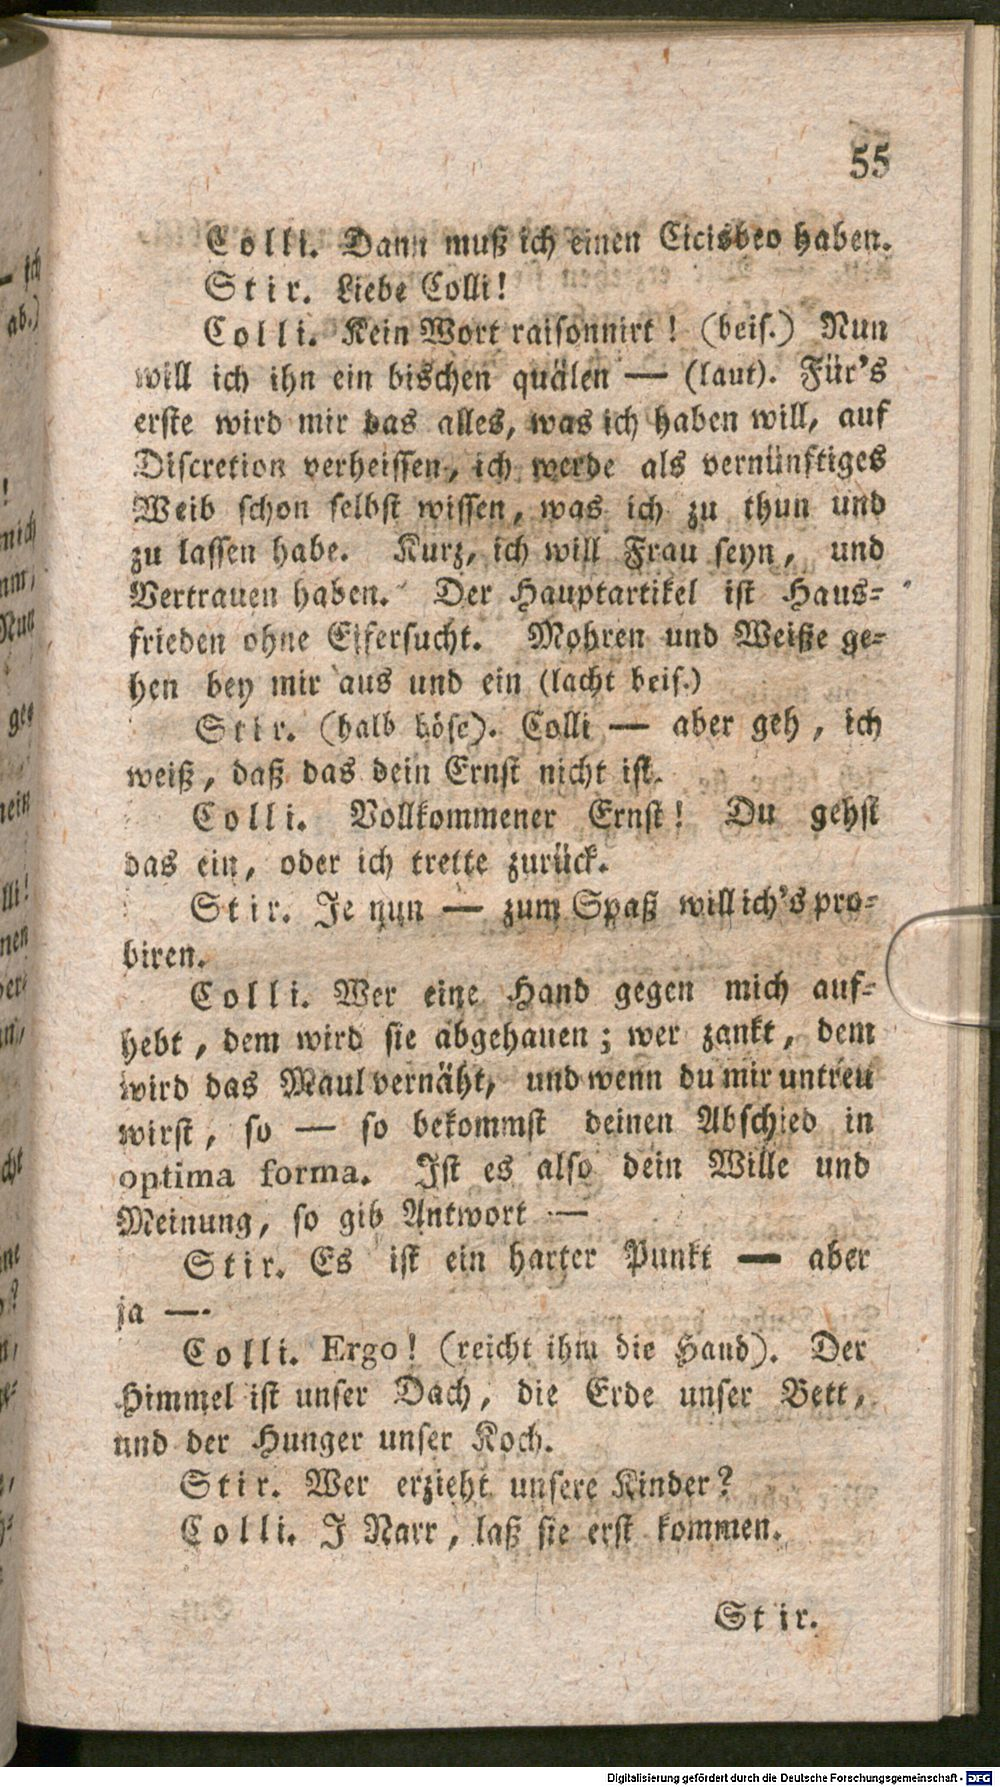 55
Colli. Dann muß ich einen Cicisbeo haben.
Stir. Liebe Colli!
Colli. Kein Wort raisonnirt! (beis.) Nun
will ich ihn ein bischen quälen — (laut). Für's
erste wird mir das alles, was ich haben will, auf
Discretion verheissen, ich werde als vernünftiges
Weib schon selbst wissen, was ich zu thun und
zu lassen habe. Kurz, ich will Frau seyn, und
Vertrauen haben. Der Hauptartikel ist Haus=
frieden ohne Eifersucht. Mohren und Weiße ge=
hen bey mir aus und ein (lacht beis.)
Stir. (halb böse). Colli — aber geh, ich
weiß, daß das dein Ernst nicht ist.
Colli. Vollkommener Ernst! Du gehst
das ein, oder ich trette zurück.
Stir. Je nun — zum Spaß will ich's pro=
biren.
Colli. Wer eine Hand gegen mich auf=
hebt, dem wird sie abgehauen; wer zankt, dem
wird das Maul vernäht, und wenn du mir untreu
wirst, so — so bekommst deinen Abschied in
optima forma. Ist es also dein Wille und
Meinung, so gib Antwort —
Stir. Es ist ein harter Punkt — aber
ja —.
Colli. Ergo! (reicht ihm die Hand). Der
Himmel ist unser Dach, die Erde unser Bett,
und der Hunger unser Koch.
Stir. Wer erzieht unsere Kinder?
Colli. I Narr, laß sie erst kommen.
Stir.
— ich
ab.)
!
mich
Nun
ges
mein
lli!
Digitalisierung gefördert durch die Deutsche Forschungsgemeinschaft - DFG